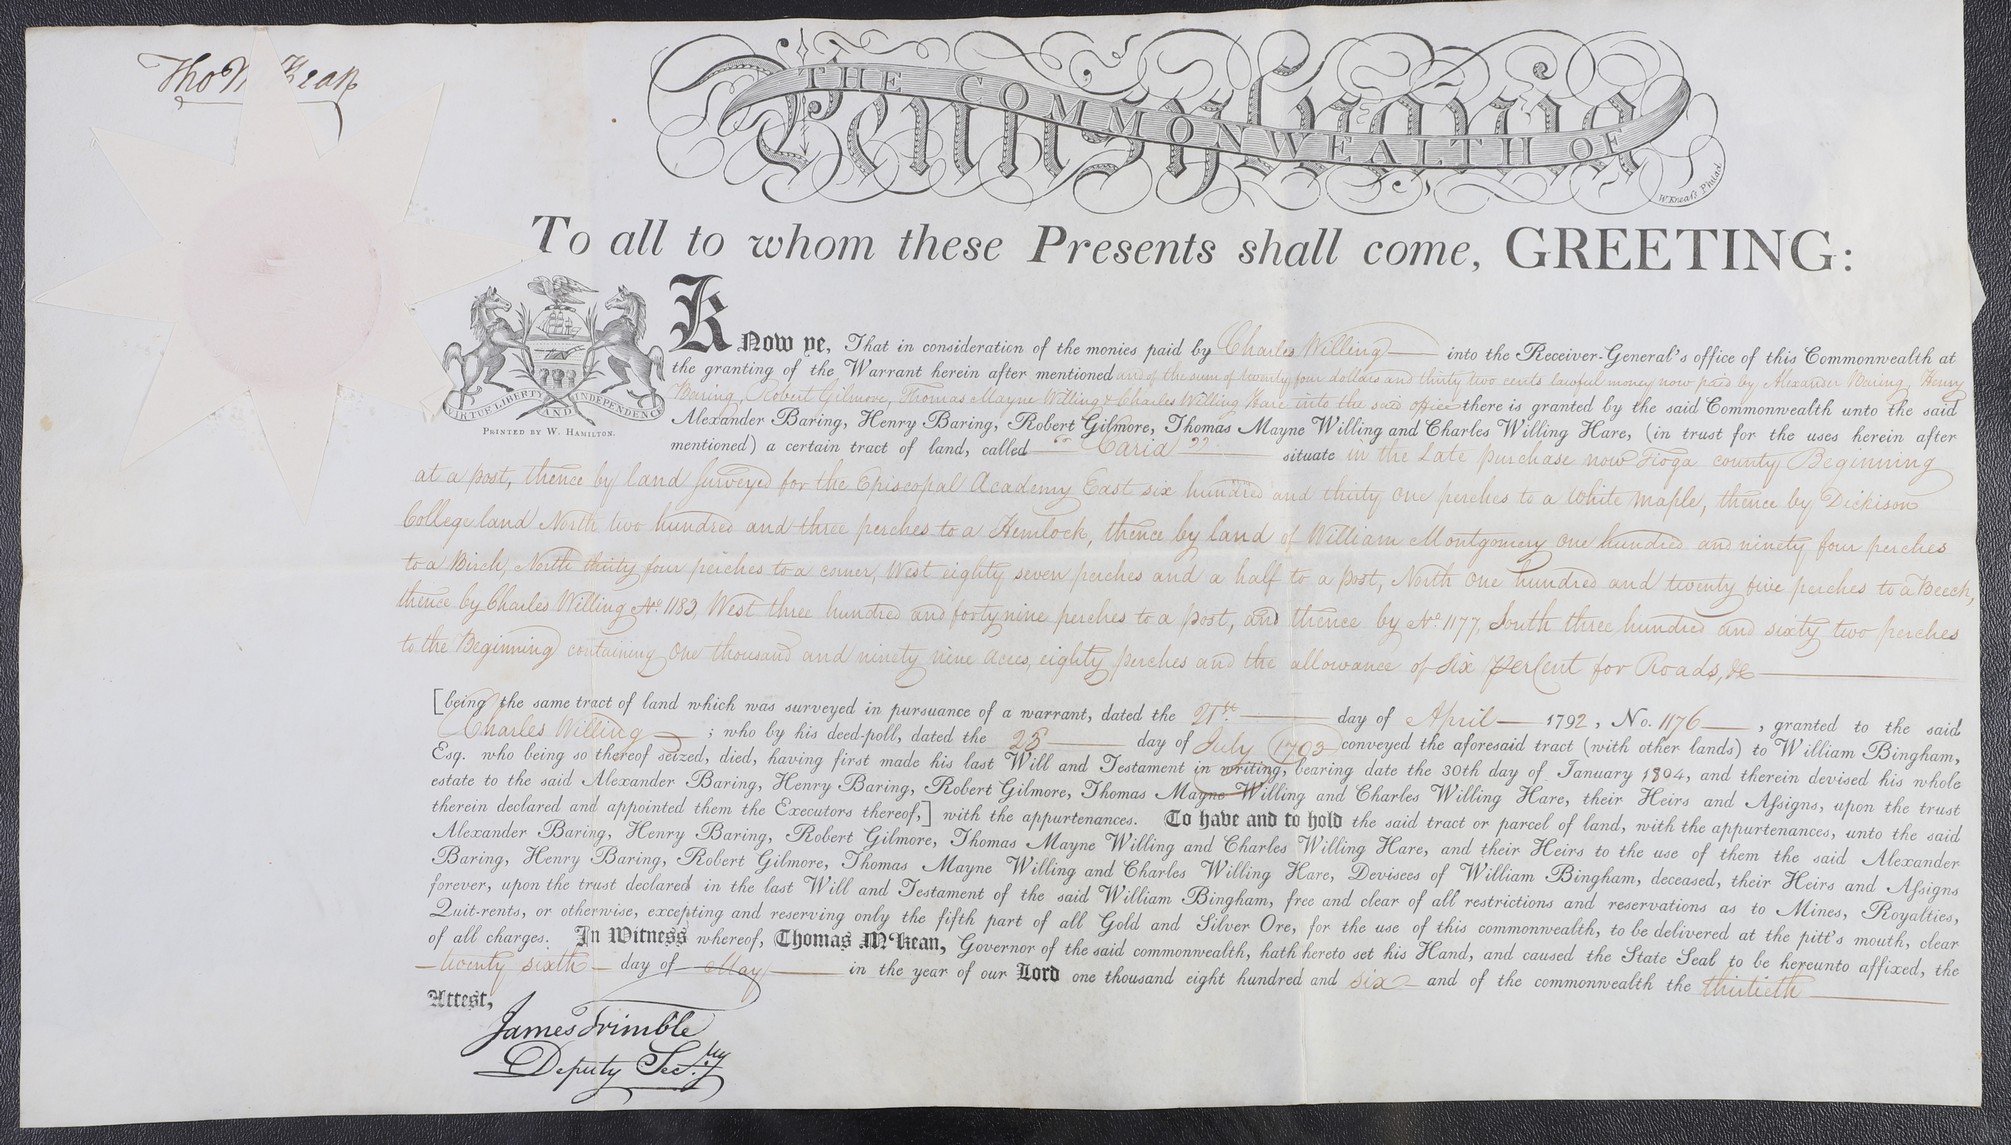 Tho M Kean
THE COMMONWEALTH OF
Pennsylvania
W. Kneass Philad.
To all to whom these Presents shall come, GREETING:
VIRTUE LIBERTY AND INDEPENDENCE
PRINTED BY W. HAMILTON.
KNow ye, That in consideration of the monies paid by Charles Willing into the Receiver-General's office of this Commonwealth at
the granting of the Warrant herein after mentioned and of the sum of twenty four dollars and thirty two cents lawful money now paid by Alexander Baring, Henry
Baring, Robert Gilmore, Thomas Mayne Willing & Charles Willing Hare into the said office there is granted by the said Commonwealth unto the said
Alexander Baring, Henry Baring, Robert Gilmore, Thomas Mayne Willing and Charles Willing Hare, (in trust for the uses herein after
mentioned) a certain tract of land, called "Caria" situate in the Late purchase now Tioga county Beginning
at a post, thence by land Surveyed for the Episcopal Academy East six hundred and thirty one perches to a White Maple, thence by Dickison
College land North two hundred and three perches to a Hemlock, thence by land of William Montgomery One hundred and ninety four perches
to a Birch, North thirty four perches to a corner, West eighty seven perches and a half to a Post, North One hundred and twenty five perches to a Beech,
thence by Charles Willing No. 1183, West three hundred and forty nine perches to a post, and thence by No. 1177, South three hundred and sixty two perches
to the Beginning containing One thousand and ninety nine Acres, eighty perches and the allowance of Six perCent for Roads, &c
[being the same tract of land which was surveyed in pursuance of a warrant, dated the 21st. day of April 1792, No. 1176, granted to the said
Charles Willing; who by his deed-poll, dated the 25 day of July 1793 conveyed the aforesaid tract (with other lands) to William Bingham,
Esq. who being so thereof seized, died, having first made his last Will and Testament in writing, bearing date the 30th day of January 1804, and therein devised his whole
estate to the said Alexander Baring, Henry Baring, Robert Gilmore, Thomas Mayne Willing and Charles Willing Hare, their Heirs and Assigns, upon the trust
therein declared and appointed them the Executors thereof,] with the appurtenances. To have and to hold the said tract or parcel of land, with the appurtenances, unto the said
Alexander Baring, Henry Baring, Robert Gilmore, Thomas Mayne Willing and Charles Willing Hare, and their Heirs to the use of them the said Alexander
Baring, Henry Baring, Robert Gilmore, Thomas Mayne Willing and Charles Willing Hare, Devisees of William Bingham, deceased, their Heirs and Assigns
forever, upon the trust declared in the last Will and Testament of the said William Bingham, free and clear of all restrictions and reservations as to Mines, Royalties,
Quit-rents, or otherwise, excepting and reserving only the fifth part of all Gold and Silver Ore, for the use of this commonwealth, to be delivered at the pitt's mouth, clear
of all charges. In Witness whereof, Thomas M'Kean, Governor of the said commonwealth, hath hereto set his Hand, and caused the State Seal to be hereunto affixed, the
twenty sixth day of May in the year of our Lord one thousand eight hundred and six and of the commonwealth the thirtieth
Attest,
James Trimble
Deputy Sec.ry